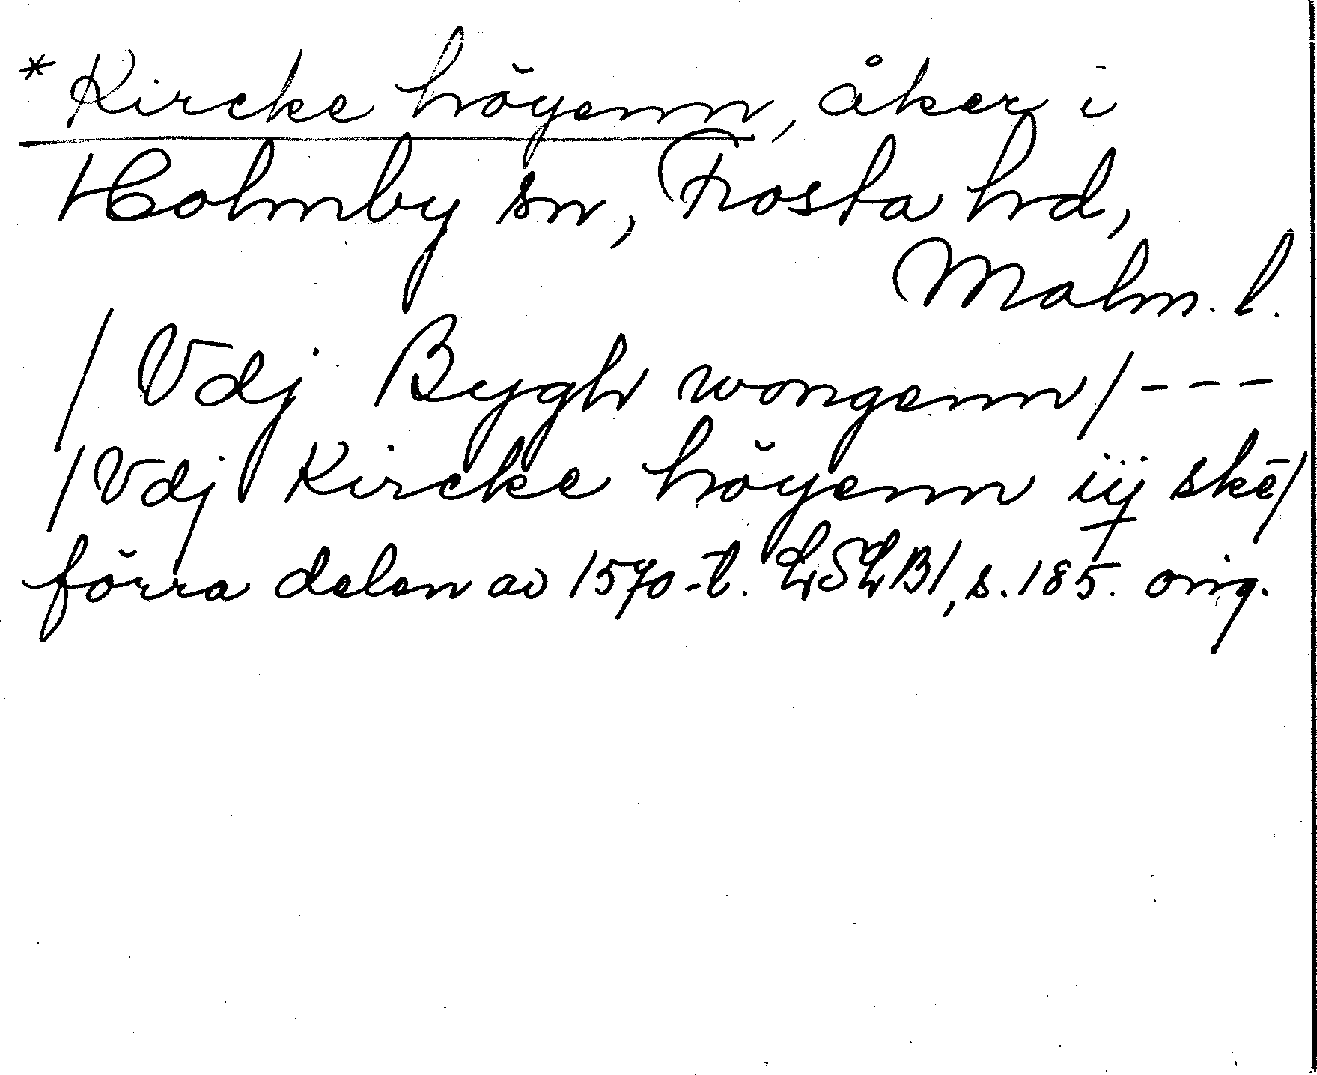 *Kircke höyenn, åker i
Holmby sn, Frosta hd,
Malm. l.
/Vdj Bygh wongenn/---
/Vdj Kircke höyenn iij skē/
förra delen av 1570-t. LSLB1, s. 185. orig.